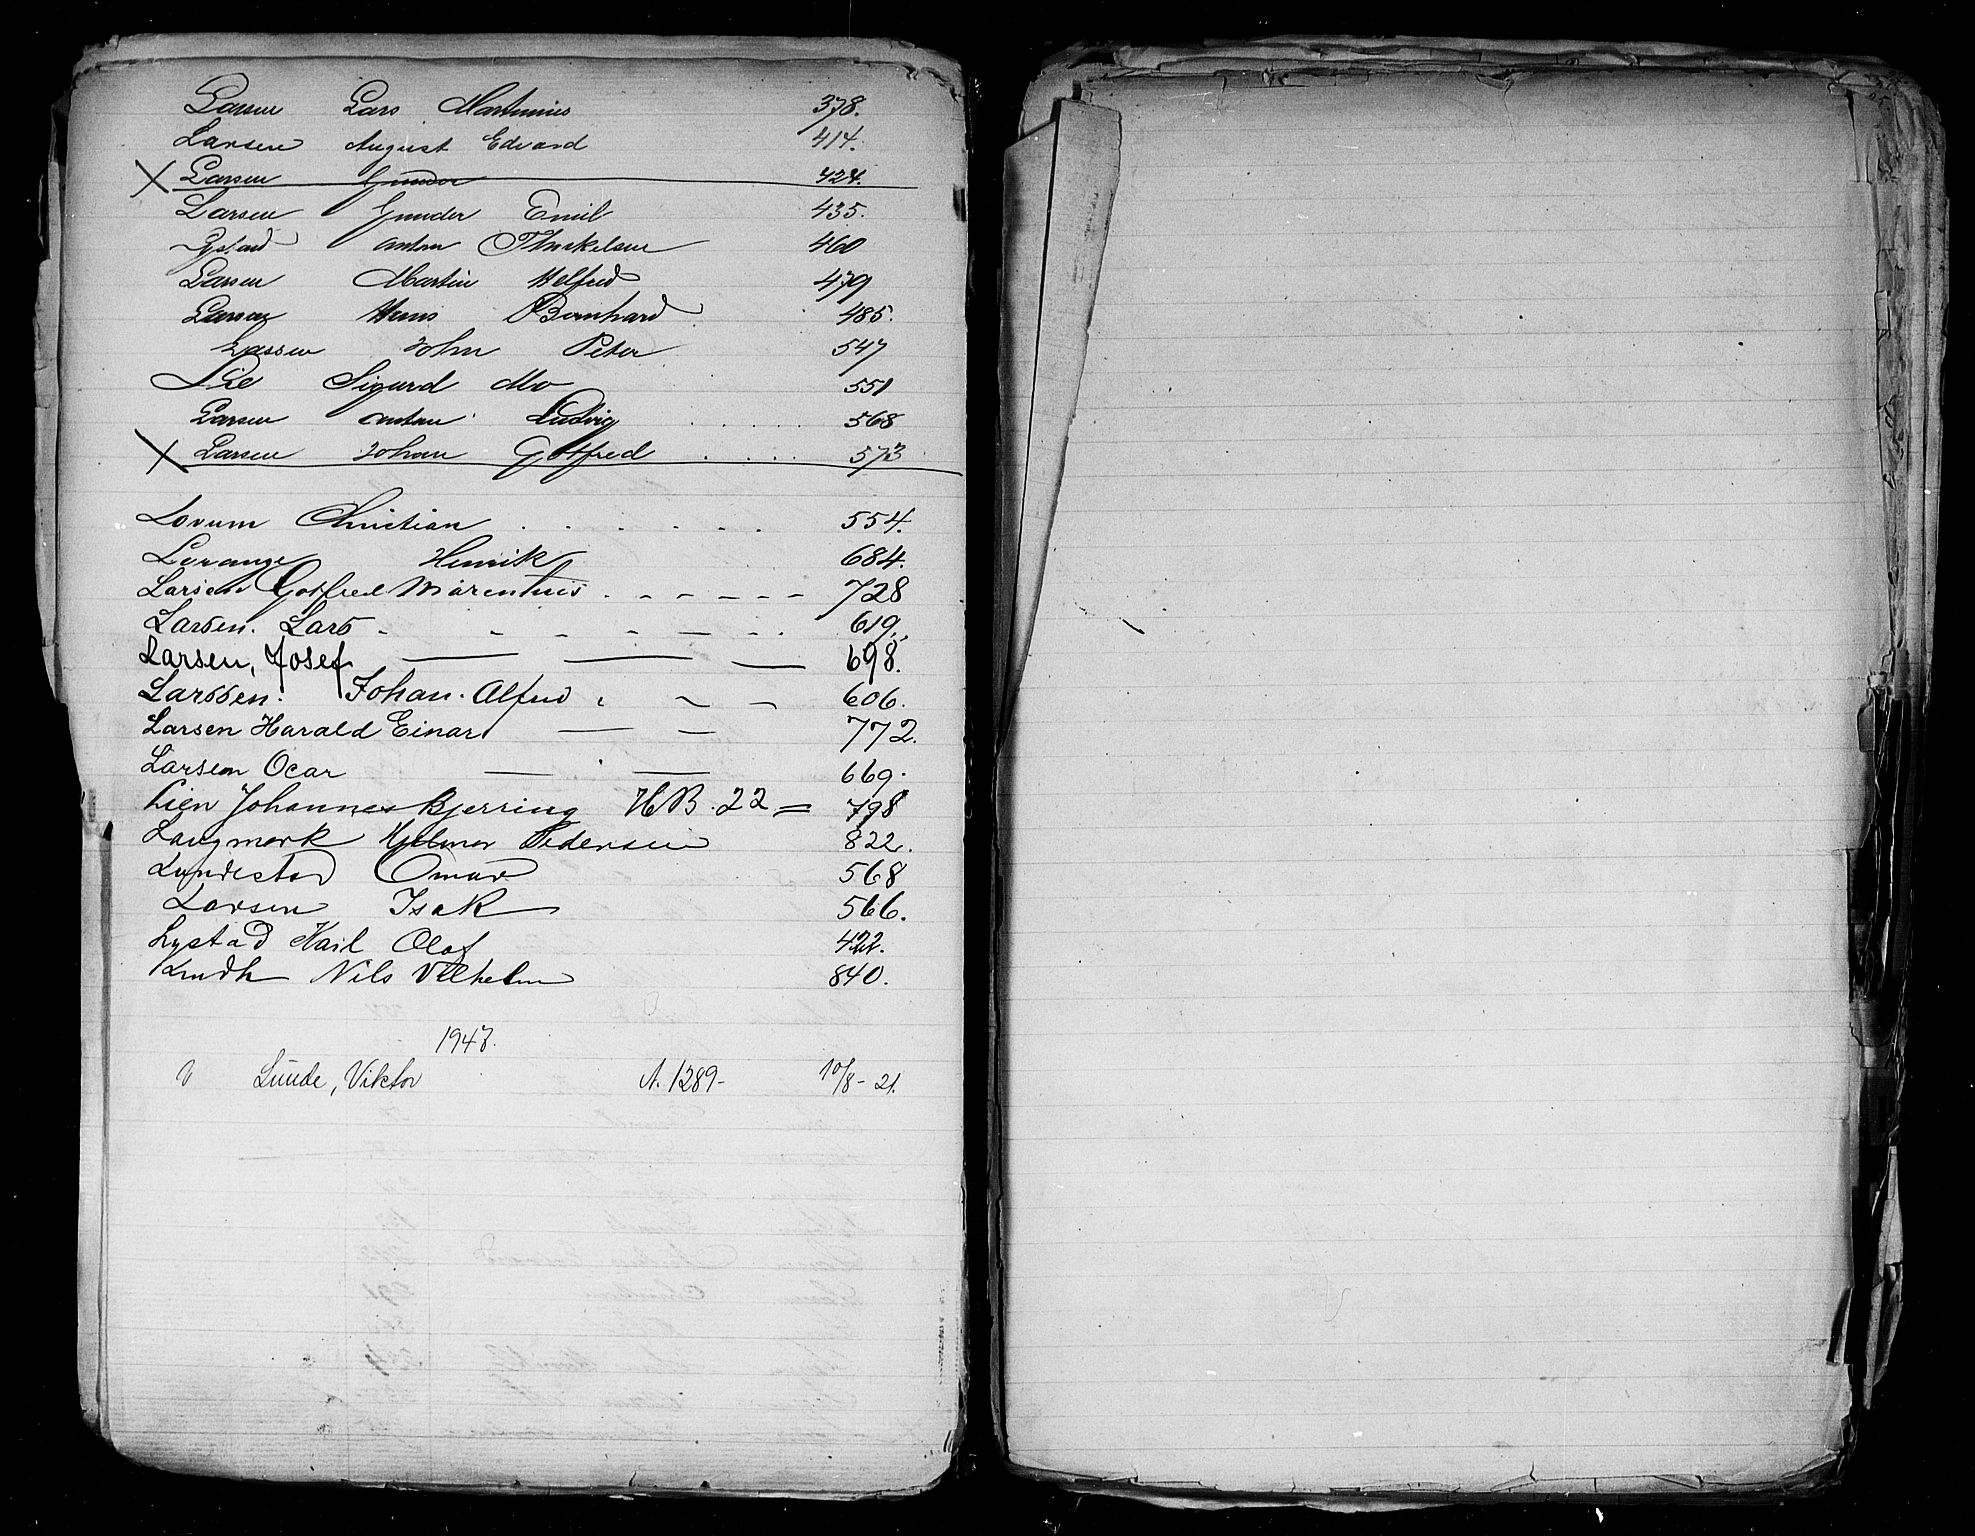 Larsen Lars Martinius 378.
Larsen August Edvard 414.
X Larsen Gunder 424.
Larsen Gunder Emil 435.
Lystad Anton Thorkelsen 460
Larsen Martin Helfred 479
Larsen Hans Bernhard 485.
Larsen John Peter 547
Lie Sigurd Mo 551
Larsen Anton Ludvig . . . . . 568
X Larsen Johan Gotfred . . . . 573
Lovum Christian . . . . . . . 554.
Lorange Henrik 684.
Larsen Gotfred Marenthius . - - - - - - 728
Larsen. Lars - - - - - - . . 619.
Larsen, Josef — — — 698.
Larssen. Johan. Alfred 606.
Larsen Harald Einar — — 772.
Larsen Ocar — — 669.
Lien Johannes Bjerring HB. 22 = 798
Langmark Hjelmar Pedersen 822.
Lundestad Omar 568
Larsen Isak 566.
Lystad Karl Olaf 422.
Lundh Nils Vilhelm 840.
1947.
V Lunde, Viktor A. 1289- 10/8-21.